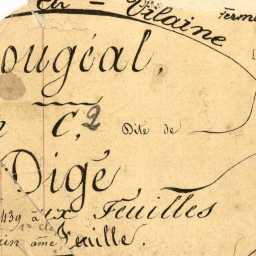 et - Vilaine
Ferme
ougéal,
C, 2 Dite de
Digé
439 à ux Feuilles
in ame Feuille.